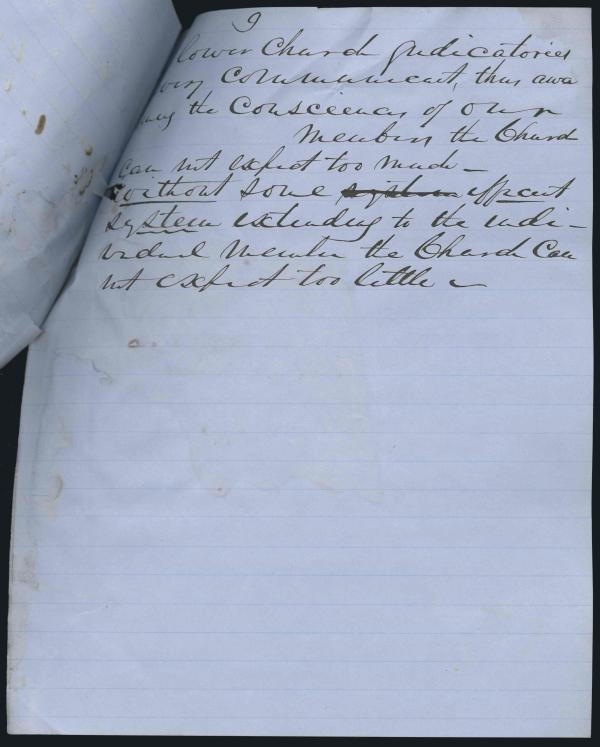 9
lower Church Judicatories
every Communicant, thus awa
ing the Consciences of our
members the Church
can not expect too much —
without some system efficent
system extending to the indi-
vidual member the Church can
not expect too little —